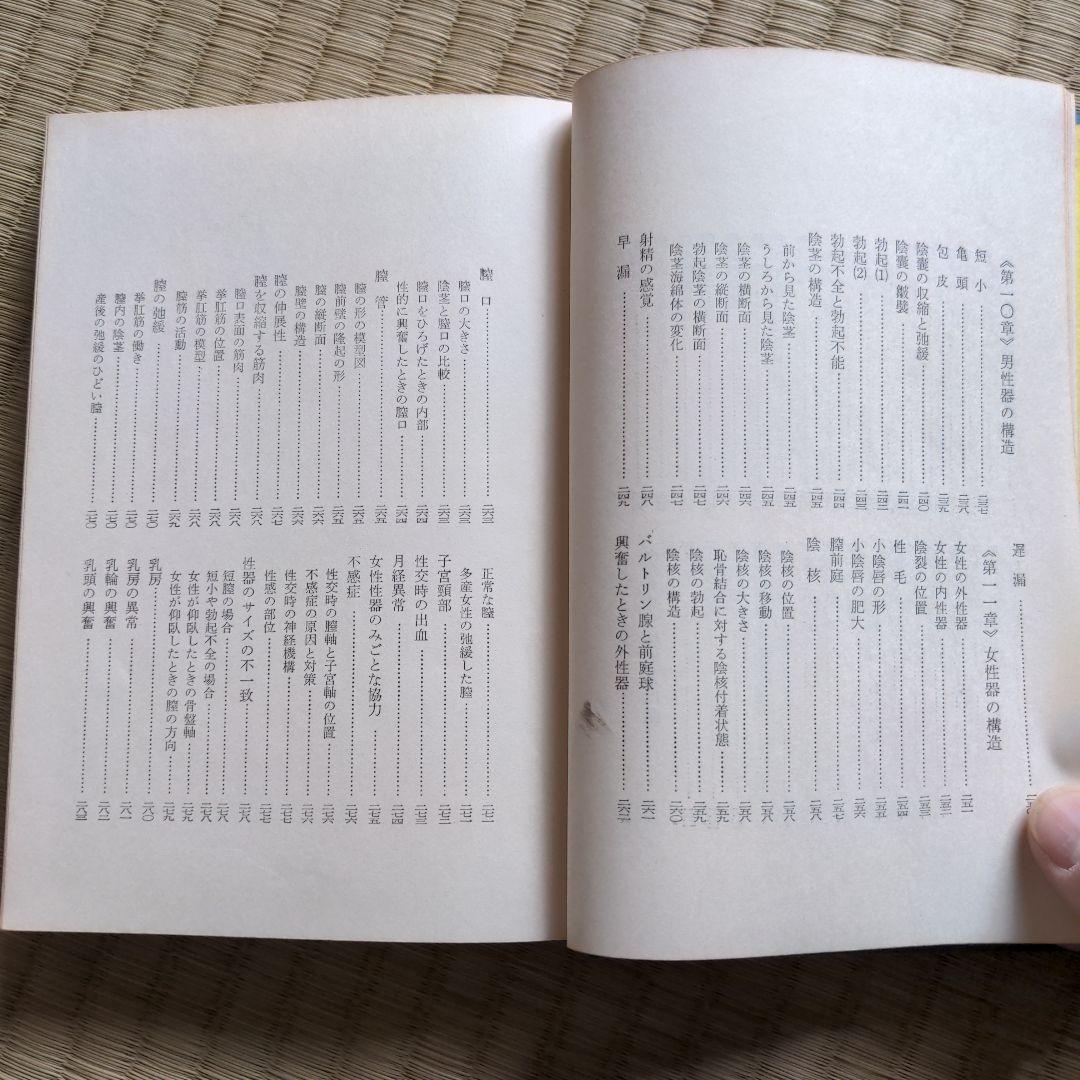 《第一〇章》男性器の構造
短小……二三七
亀頭……二三八
包皮……二三九
陰嚢の収縮と弛緩……二四〇
陰嚢の皺襞……二四一
勃起(1)……二四二
勃起(2)……二四三
勃起不全と勃起不能……二四四
陰茎の構造……二四五
前から見た陰茎……二四五
うしろから見た陰茎……二四五
陰茎の横断面……二四六
陰茎の縦断面……二四六
勃起陰茎の横断面……二四七
陰茎海綿体の変化……二四七
射精の感覚……二四八
早漏……二四九
遅漏……
《第一一章》女性器の構造
女性の外性器……二五一
女性の内性器……二五二
陰裂の位置……二五三
性毛……二五四
小陰唇の形……二五五
小陰唇の肥大……二五六
膣前庭……二五七
陰核……二五八
陰核の位置……二五八
陰核の移動……二五八
陰核の大きさ……二五九
恥骨結合に対する陰核付着状態……二五九
陰核の勃起……二五九
陰核の構造……二六〇
バルトリン腺と前庭球……二六一
興奮したときの外性器……二六二
膣口……二六三
膣口の大きさ……二六三
陰茎と膣口の比較……二六三
膣口をひろげたときの内部……二六四
性的に興奮したときの膣口……二六四
膣管……二六五
膣の形の模型図……二六五
膣前壁の隆起の形……二六五
膣の縦断面……二六六
膣壁の構造……二六六
膣の伸展性……二六七
膣を収縮する筋肉……二六八
膣口表面の筋肉……二六八
挙肛筋の位置……二六八
挙肛筋の模型……二六九
膣筋の活動……二六九
膣の弛緩……二七〇
挙肛筋の働き……二七〇
膣内の陰茎……二七〇
産後の弛緩のひどい膣……二七〇
正常な膣……二七一
多産女性の弛緩した膣……二七一
子宮頸部……二七二
性交時の出血……二七三
月経異常……二七四
女性性器のみごとな協力……二七五
不感症……二七六
性交時の膣軸と子宮軸の位置……二七六
不感症の原因と対策……二七六
性交時の神経機構……二七七
性感の部位……二七七
性器のサイズの不一致……二七八
短膣の場合……二七八
短小や勃起不全の場合……二七八
女性が仰臥したときの骨盤軸……二七九
女性が仰臥したときの膣の方向……二七九
乳房……二八〇
乳房の異常……二八一
乳輪の興奮……二八二
乳頭の興奮……二八三